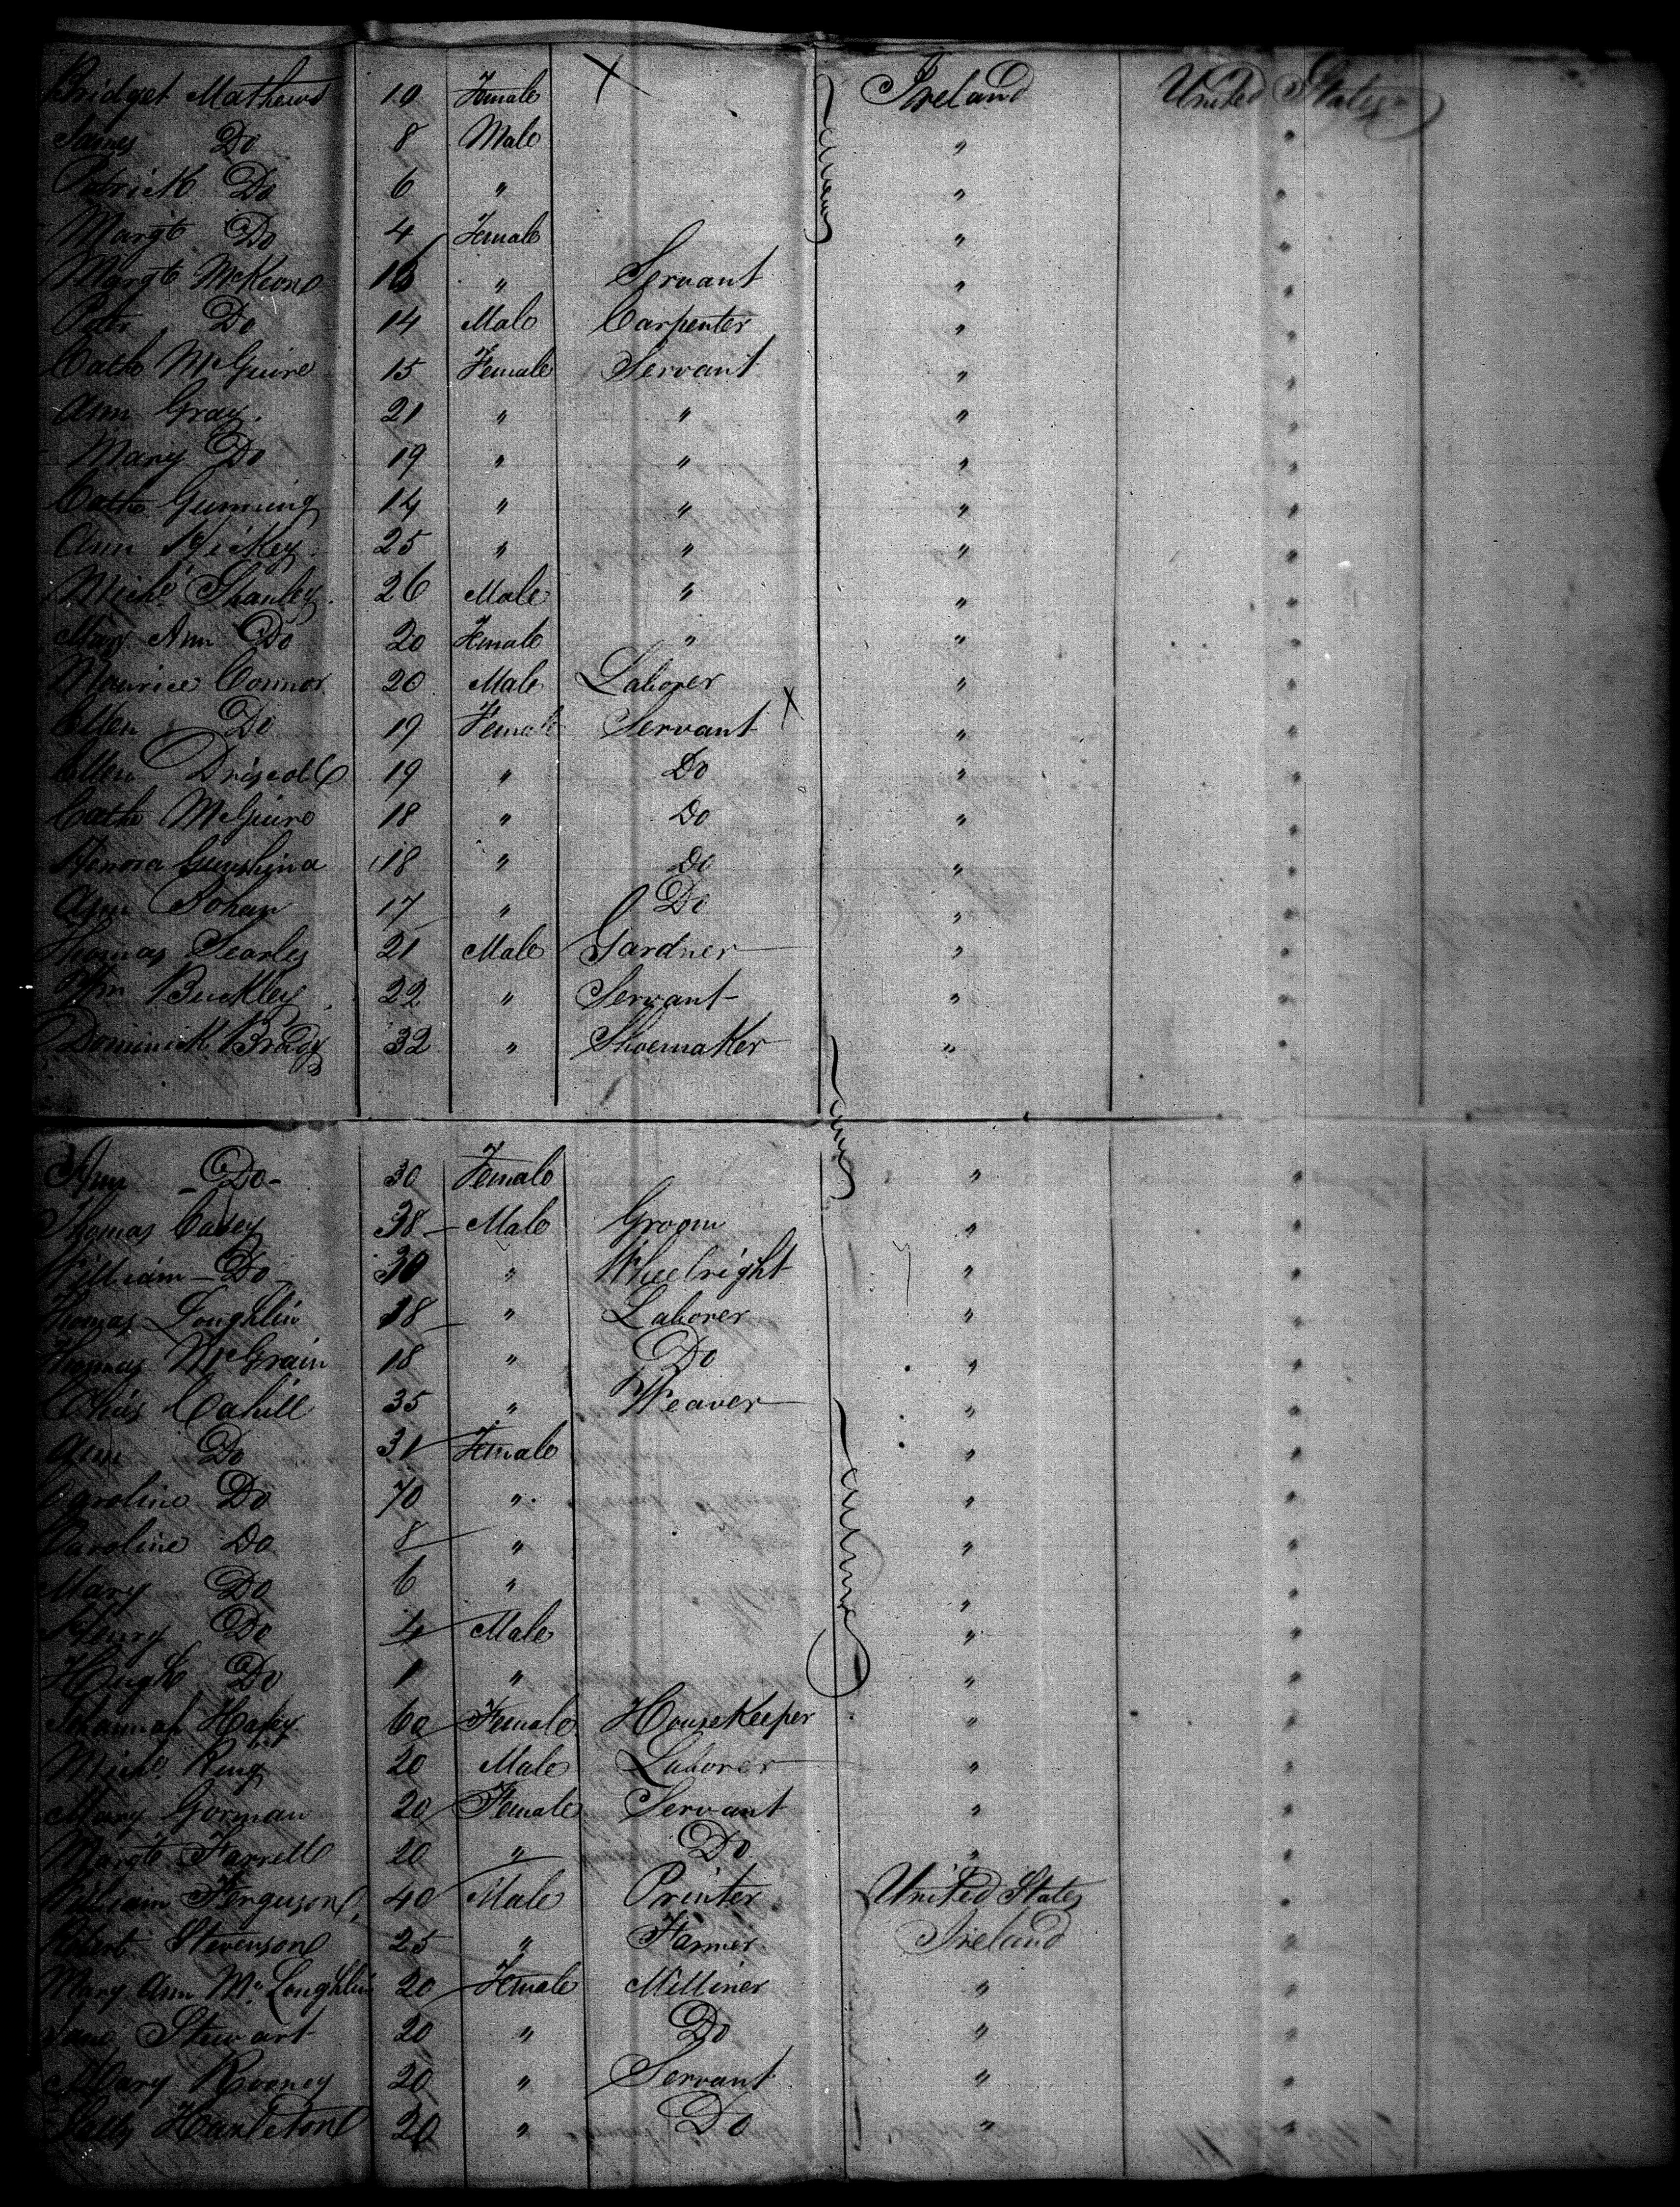 Bridget Mathews 10 Female X Ireland United States
James Do 8 Male " "
Patrick Do 6 " " "
Margt Do 4 Female " "
Margt McKeon 18 " Servant " "
Peter Do 14 Male Carpenter " "
Cath McGuire 15 Female Servant " "
Ann Gray 21 " " " "
Mary Do 19 " " " "
Cath Gunning 14 " " " "
Ann Hickey 25 " " " "
Michl Shanley 26 Male " " "
Mary Ann Do 20 Female " " "
Maurice Connor 20 Male Laborer " "
Ellen Do 19 Female Servant X " "
Ellen Driscoll 19 " Do " "
Cath McGuire 18 " Do " "
Honora 18 " Do " "
Ann Bohan 17 " Do " "
Thomas Searles 21 Male Gardner " "
Wm Buckley 22 " Servant " "
Dominick Brady 32 " Shoemaker " "
Ann - Do - 30 Female " "
Thomas Casey 38 Male Groom " "
William - Do - 30 " Wheelright " "
Thomas Loughlin 18 " Laborer " "
Thomas McGrain 18 " Do " "
Chas Cahill 35 " Weaver " "
Ann Do 31 Female " "
Caroline Do 70 " " "
Caroline Do 8 " " "
Mary Do 6 " " "
Henry Do 4 Male " "
Hugh Do 1 " " "
Hannah 60 Female HouseKeeper " "
Michl King 20 Male Laborer " "
Mary Gorman 20 Female Servant " "
Margt Farrell 20 " Do " "
William Ferguson 40 Male Printer United States "
Robert Stevenson 25 " Farmer Ireland "
Mary Ann McLoughlin 20 Female Milliner " "
Jane Stewart 20 " Do " "
Mary Rooney 20 " Servant " "
Sally Hazleton 20 " Do " "